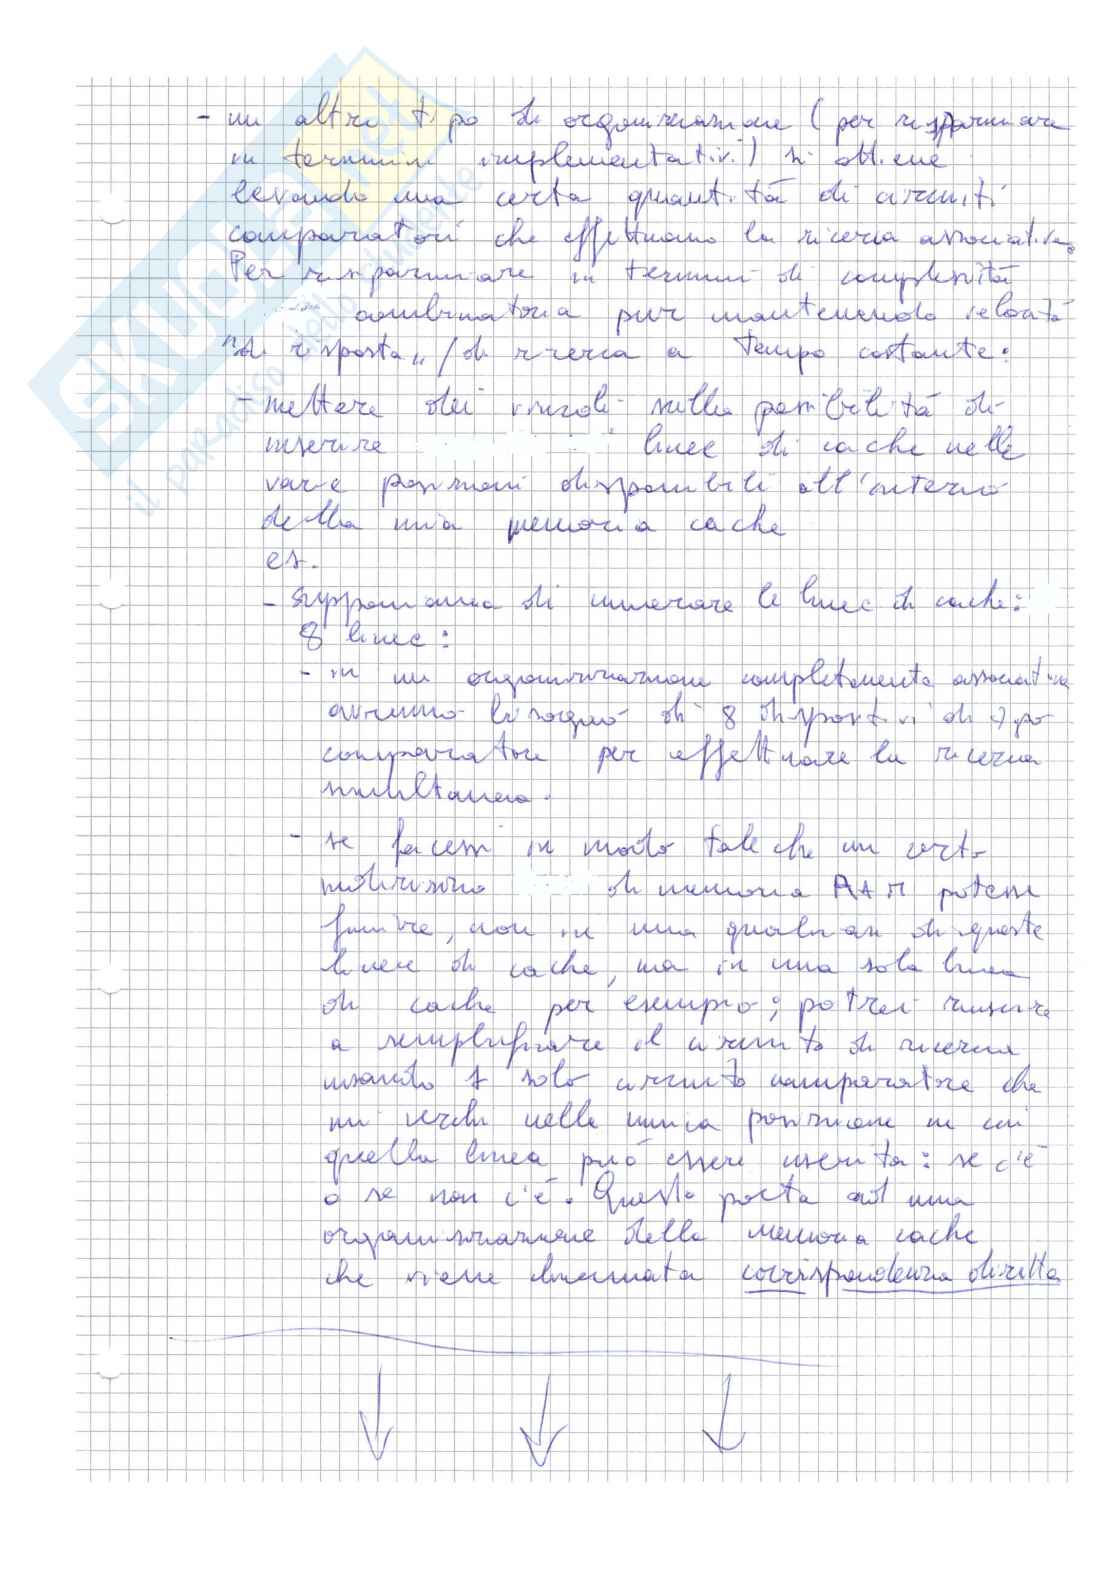 - un altro tipo di organizzazione (per risparmiare
in termini implementativi) si ottiene
levando una certa quantità di circuiti
comparatori che effettuano la ricerca associativa.
Per risparmiare in termini di complessità
combinatoria pur mantenendo velocità
"di risposta" / di ricerca a tempo costante:
- mettere dei vincoli sulla possibilità di
inserire linee di cache nelle
varie posizioni disponibili all'interno
della mia memoria cache
es.
- supponiamo di numerare le linee di cache:
8 linee:
- in un organizzazione completamente associativa
avremmo bisogno di 8 dispositivi di tipo
comparatore per effettuare la ricerca
simultanea.
- se facessi in modo tale che un certo
indirizzo di memoria RAM potesse
finire, non in una qualsiasi di queste
linee di cache, ma in una sola linea
di cache per esempio; potrei riuscire
a semplificare il circuito di ricerca
usando 1 solo circuito comparatore che
mi verifichi nella unica posizione in cui
quella linea può essere inserita: se c'è
o se non c'è. Questo porta ad una
organizzazione della memoria cache
che viene chiamata corrispondenza diretta
SKUOLA.net
il paradiso dello studente